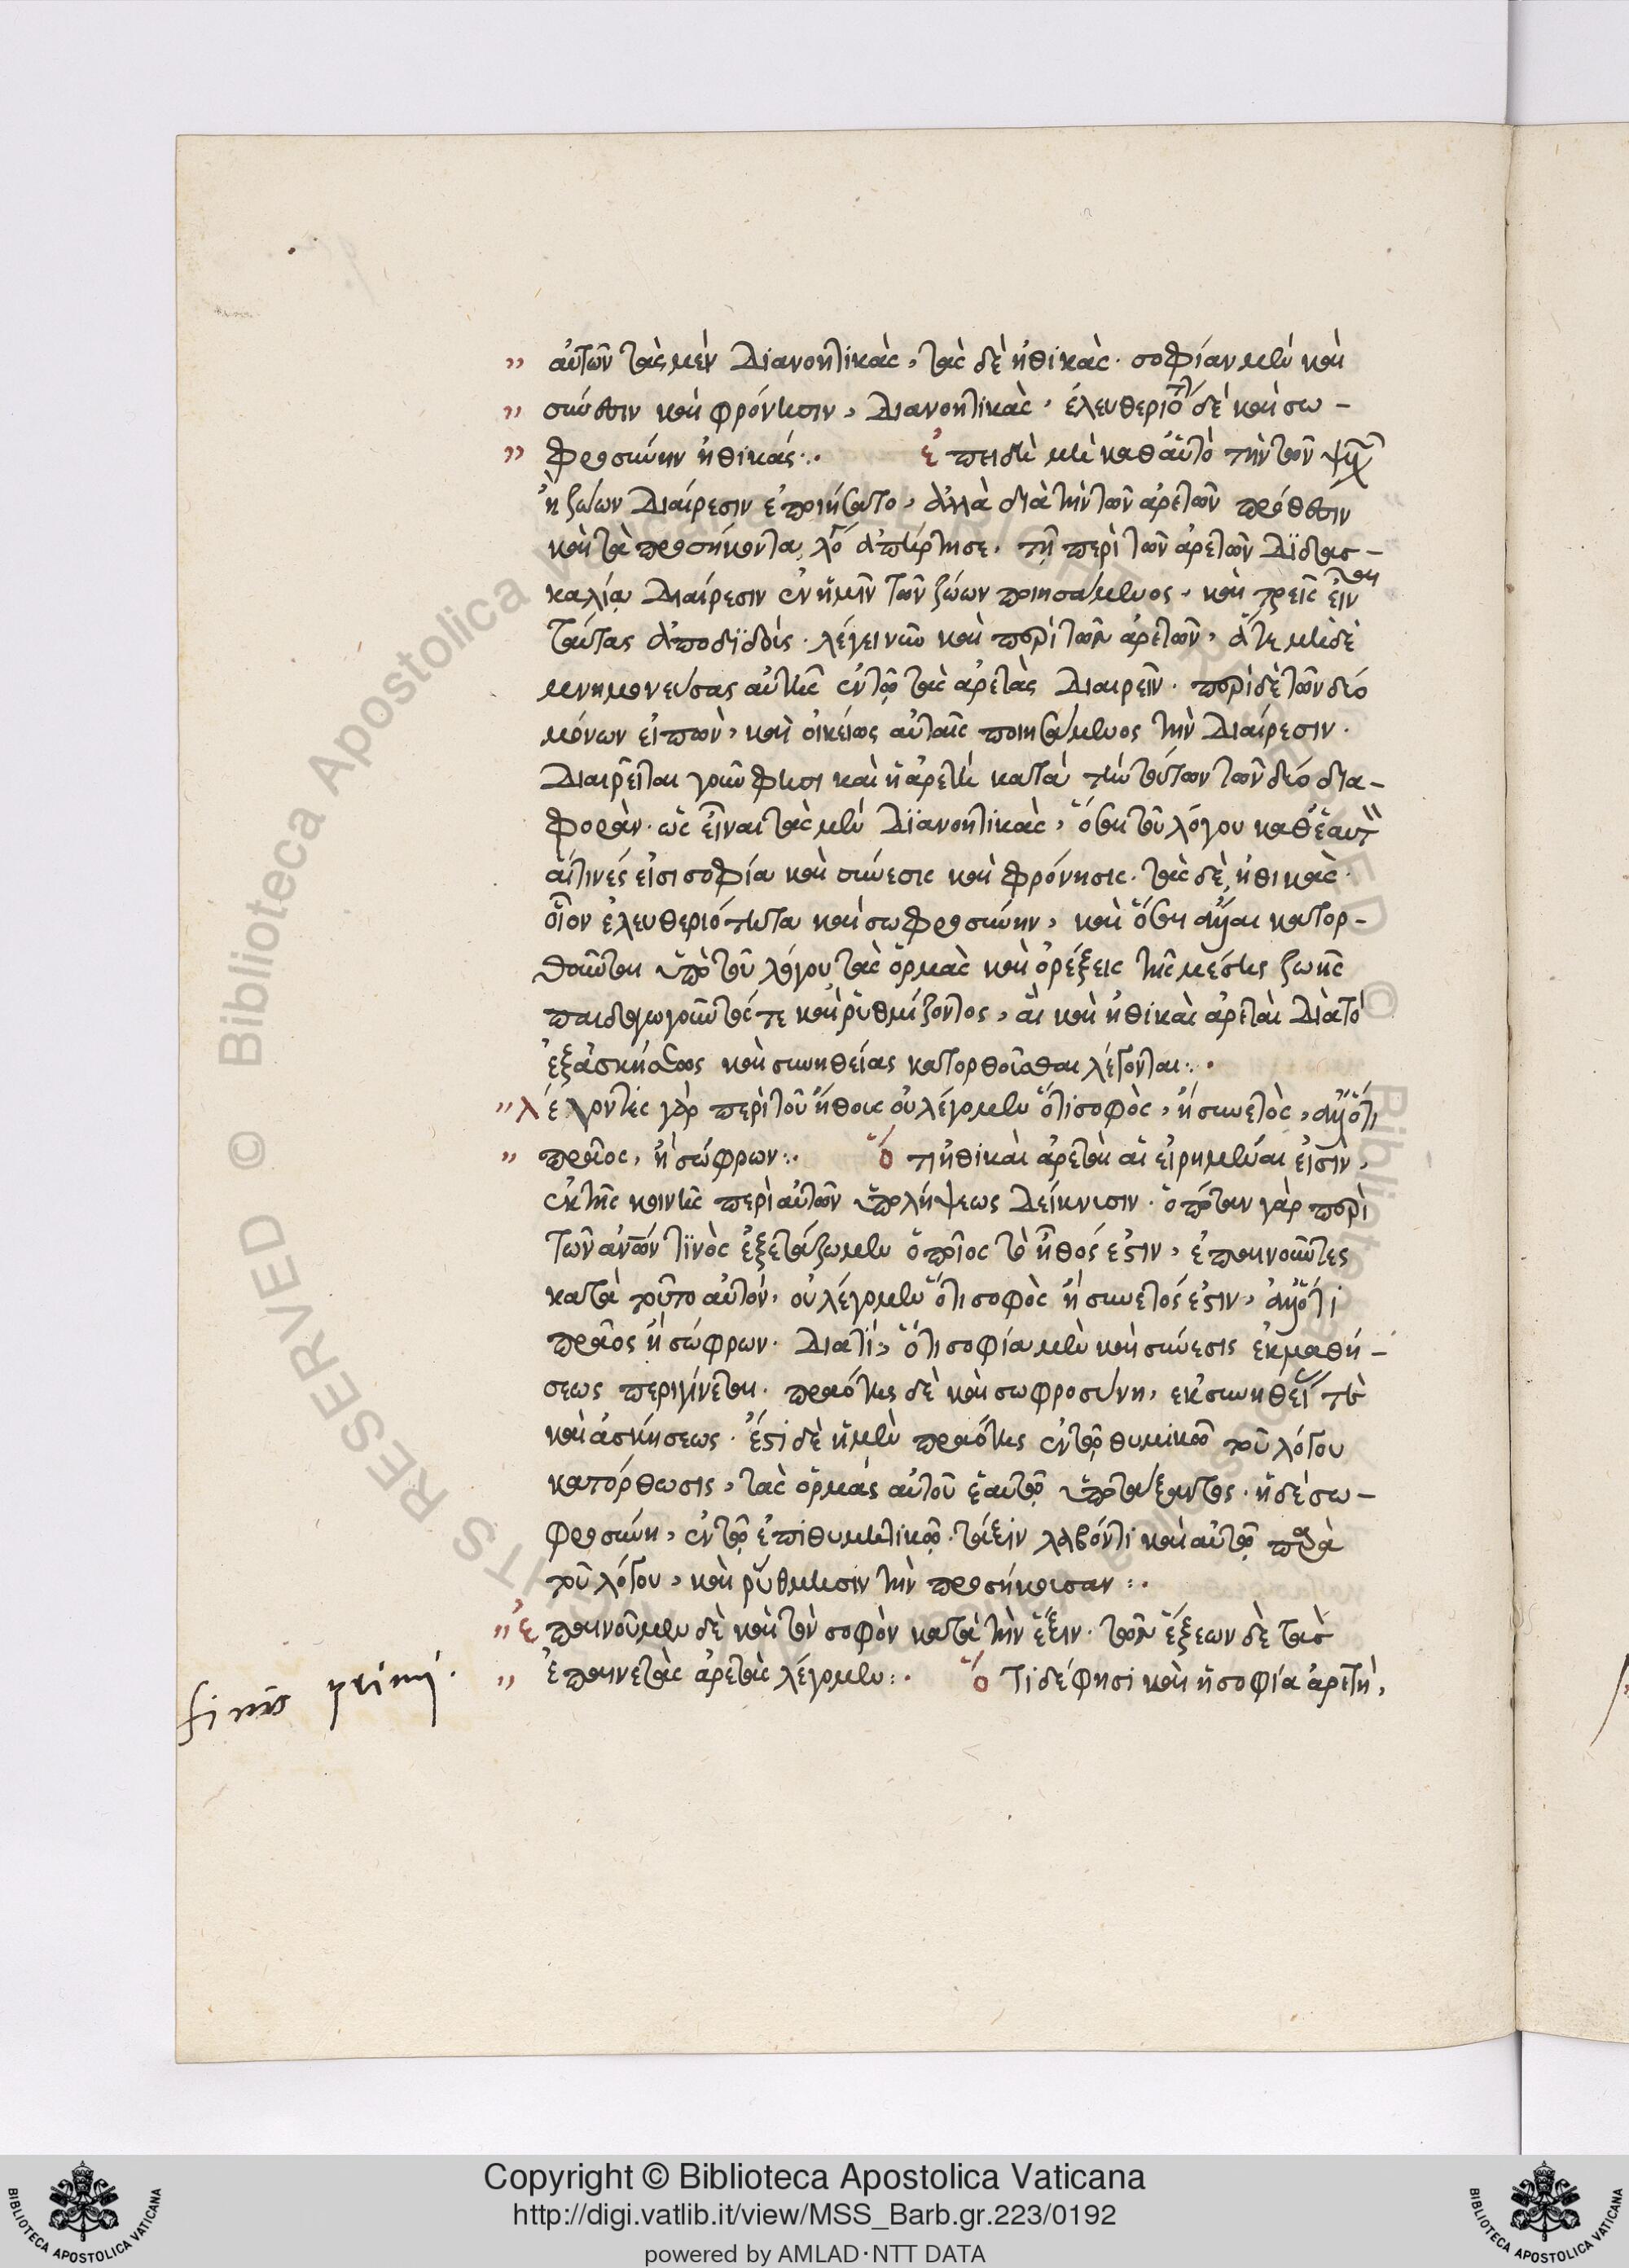 " αὐτῶν τὰς μὲν διανοητικὰς, τὰς δὲ ἠθικὰς· σοφίαν μὲν καὶ
" σύνεσιν καὶ φρόνησιν, διανοητικὰς, ἐλευθεριότητα δὲ καὶ σω-
" φροσύνην ἠθικάς:· ἐπειδὴ μὴ καθ' αὑτὸ τὴν τῶν
ἢ ζώων διαίρεσιν ἐποιήσατο, ἀλλὰ διὰ τὴν τῶν ἀρετῶν πρόθεσιν
καὶ τὰ προσήκοντα ἀπήρτησε, τῇ περὶ τῶν ἀρετῶν διδασ-
καλίᾳ διαίρεσιν ἐν ἡμῖν τῶν ζώων ποιησάμενος, καὶ τρεῖς εἶναι
ταύτας ἀποδιδοὺς· λέγει νῦν καὶ περὶ τῶν ἀρετῶν, ἅτε μηδὲ
μνημονεύσας αὐτῆς ἐν τῷ τὰς ἀρετὰς διαιρεῖν· περὶ δὲ τῶν δύο
μόνων εἰπὼν, καὶ οἰκείως αὐταῖς ποιησάμενος τὴν διαίρεσιν·
διαιρεῖται γοῦν φησι καὶ ἡ ἀρετὴ κατὰ τὴν τούτων τῶν δύο δια-
φορὰν· ὡς εἶναι τὰς μὲν διανοητικὰς, ὅσαι τοῦ λόγου καθ' ἑαυτὸν
αἵτινές εἰσι σοφία καὶ σύνεσις καὶ φρόνησις· τὰς δὲ ἠθικὰς·
οἷον ἐλευθεριότητα καὶ σωφροσύνην, καὶ ὅσαι ἄλλαι κατορ-
θοῦνται ὑπὸ τοῦ λόγου τὰς ὁρμὰς καὶ ὀρέξεις τῆς μέσης ζωῆς
παιδαγωγοῦντός τε καὶ ῥυθμίζοντος, αἳ καὶ ἠθικαὶ ἀρεταὶ διὰ τὸ
ἐξ ἀσκήσεως καὶ συνηθείας κατορθοῦσθαι λέγονται:·
" λέγοντες γὰρ περὶ τοῦ ἤθους οὐ λέγομεν ὅτι σοφὸς, ἢ συνετὸς, ἀλλ' ὅτι
" πρᾶος, ἢ σώφρων:· ὅτι ἠθικαὶ ἀρεταὶ αἱ εἰρημέναι εἰσὶν,
ἐκ τῆς κοινῆς περὶ αὐτῶν ὑπολήψεως δείκνυσιν· ὁπόταν γὰρ περὶ
τῶν ἀνθρώπων τινὸς ἐξετάζωμεν ὁποῖος τὸ ἦθός ἐστιν, ἐπαινοῦντες
κατὰ τοῦτο αὐτόν, οὐ λέγομεν ὅτι σοφὸς ἢ συνετός ἐστιν, ἀλλ' ὅτι
πρᾶος ἢ σώφρων· διατί; ὅτι σοφία μὲν καὶ σύνεσις ἐκ μαθή-
σεως περιγίνεται· πραότης δὲ καὶ σωφροσύνη, ἐκ συνηθείας τε
καὶ ἀσκήσεως· ἔστι δὲ ἡ μὲν πραότης ἐν τῷ θυμικῷ τοῦ λόγου
κατόρθωσις, τὰς ὁρμὰς αὐτοῦ ἑαυτῷ ὑποτάξαντος· ἡ δὲ σω-
φροσύνη, ἐν τῷ ἐπιθυμητικῷ· τάξιν λαβόντι καὶ αὐτῷ παρὰ
τοῦ λόγου, καὶ ῥύθμησιν τὴν προσήκουσαν:·
" ἐπαινοῦμεν δὲ καὶ τὸν σοφὸν κατὰ τὴν ἕξιν· τῶν ἕξεων δὲ τὰς
" ἐπαινετὰς ἀρετὰς λέγομεν:· ὅτι δέ φησι καὶ ἡ σοφία ἀρετὴ,
finis primi.
Copyright © Biblioteca Apostolica Vaticana
http://digi.vatlib.it/view/MSS_Barb.gr.223/0192
powered by AMLAD·NTT DATA